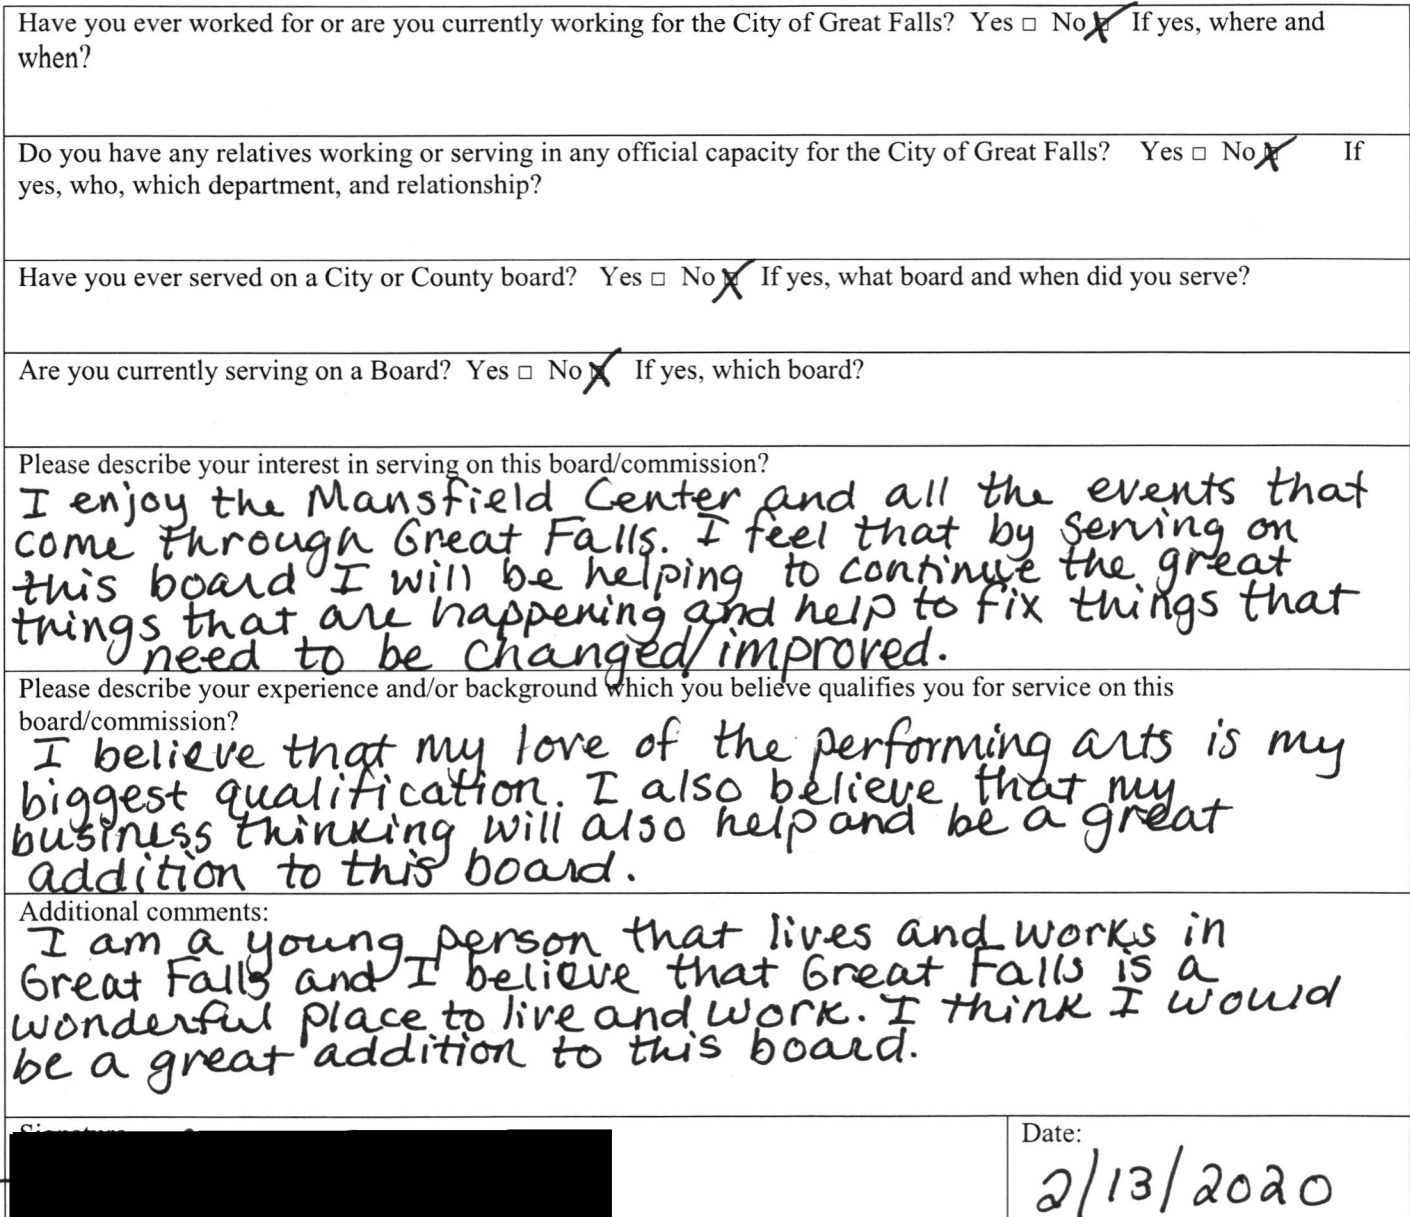 Have you ever worked for or are you currently working for the City of Great Falls? Yes □ No ☒ If yes, where and
when?
Do you have any relatives working or serving in any official capacity for the City of Great Falls? Yes □ No ☒ If
yes, who, which department, and relationship?
Have you ever served on a City or County board? Yes □ No ☒ If yes, what board and when did you serve?
Are you currently serving on a Board? Yes □ No ☒ If yes, which board?
Please describe your interest in serving on this board/commission?
I enjoy the Mansfield Center and all the events that
come through Great Falls. I feel that by serving on
this board I will be helping to continue the great
things that are happening and help to fix things that
need to be changed/improved.
Please describe your experience and/or background which you believe qualifies you for service on this
board/commission?
I believe that my love of the performing arts is my
biggest qualification. I also believe that my
business thinking will also help and be a great
addition to this board.
Additional comments:
I am a young person that lives and works in
Great Falls and I believe that Great Falls is a
wonderful place to live and work. I think I would
be a great addition to this board.
Date:
2/13/2020